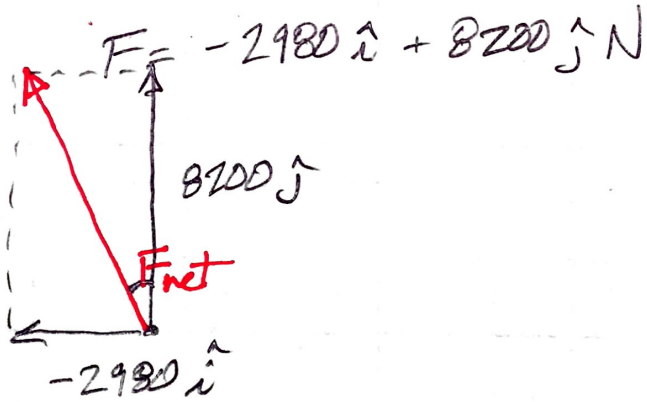 F = -2980 î + 8200 ĵ N
8200 ĵ
Fnet
-2980 î